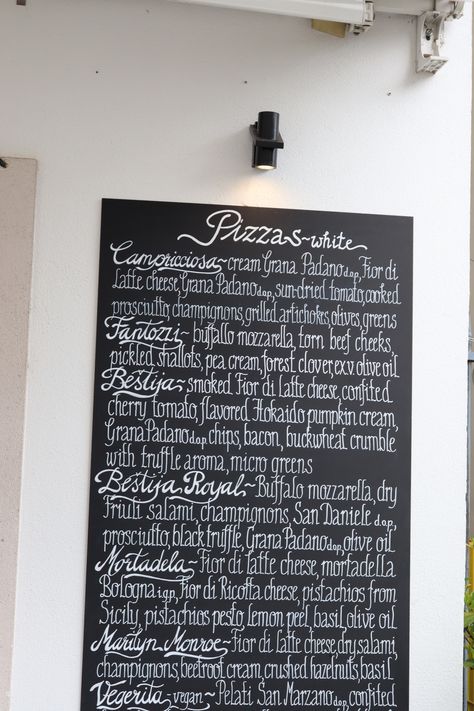 Pizzas~white
Campricciosa~cream Grana Padano d.o.p, Fior di
Latte cheese, Grana Padano d.o.p, sun-dried tomato, cooked
prosciutto, champignons, grilled artichokes, olives, greens
Fantozzi~ buffallo mozzarella, torn beef cheeks,
pickled shallots, pea cream, forest clover, exv olive oil
Beštija~smoked Fior di Latte cheese, confited
cherry tomato, flavored Hokaido pumpkin cream,
Grana Padano d.o.p chips, bacon, buckwheat crumble
with truffle aroma, micro greens
Beštija Royal~Buffalo mozzarella, dry
Friuli salami, champignons, San Daniele d.o.p,
prosciutto, black truffle, Grana Padano d.o.p, olive oil
Mortadela~Fior di latte cheese, mortadella
Bologna i.g.p, Fior di Ricotta cheese, pistachios from
Sicily, pistachios pesto, lemon peel, basil, olive oil
Marilyn Monroe~Fior di Latte cheese, dry salami,
champignons, beetroot cream, crushed hazelnuts, basil
Vegerita~vegan~Pelati San Marzano d.o.p, confited